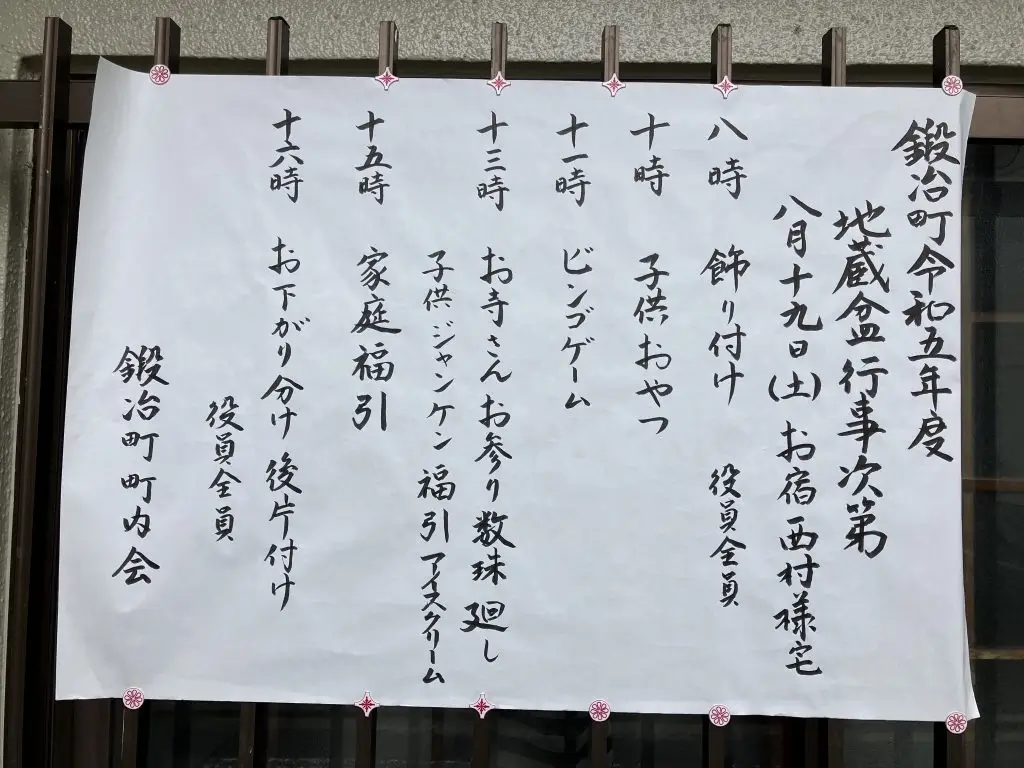 鍛冶町令和五年度
地蔵盆行事次第
八月十九日(土)お宿西村様宅
八時 飾り付け 役員全員
十時 子供おやつ
十一時 ビンゴゲーム
十三時 お寺さんお参り数珠廻し
子供ジャンケン福引アイスクリーム
十五時 家庭福引
十六時 お下がり分け後片付け
役員全員
鍛冶町町内会